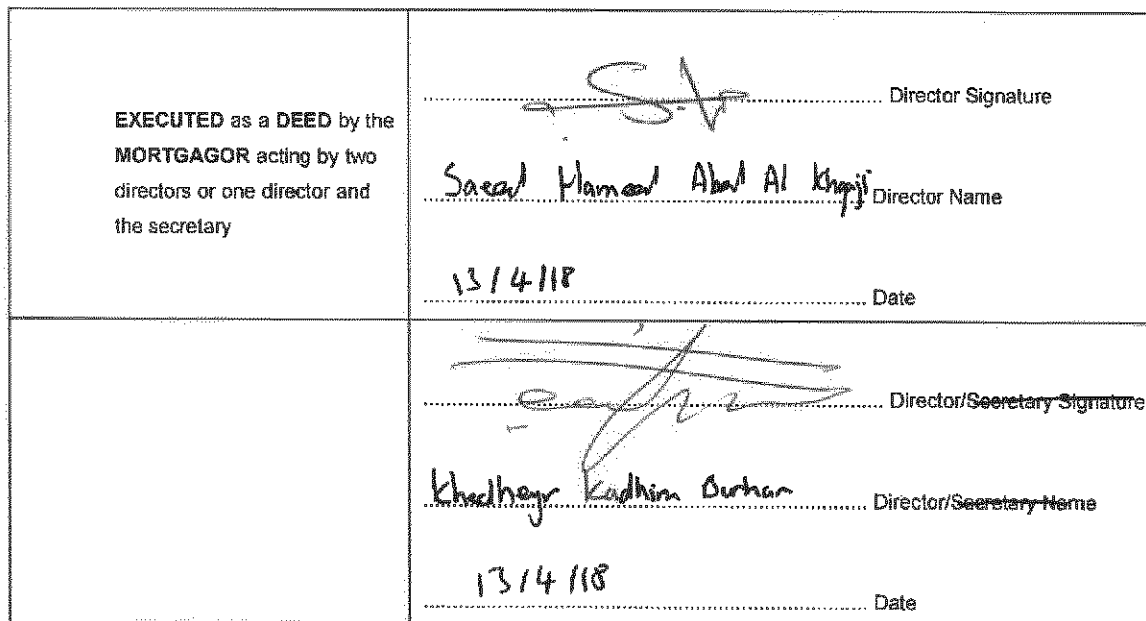 EXECUTED as a DEED by the
MORTGAGOR acting by two
directors or one director and
the secretary
Director Signature
Saeed Hameed Abed Al Director Name
13/4/18 Date
Director/Secretary Signature
Khedheyr Kadhim Burhan Director/Secretary Name
13/4/18 Date